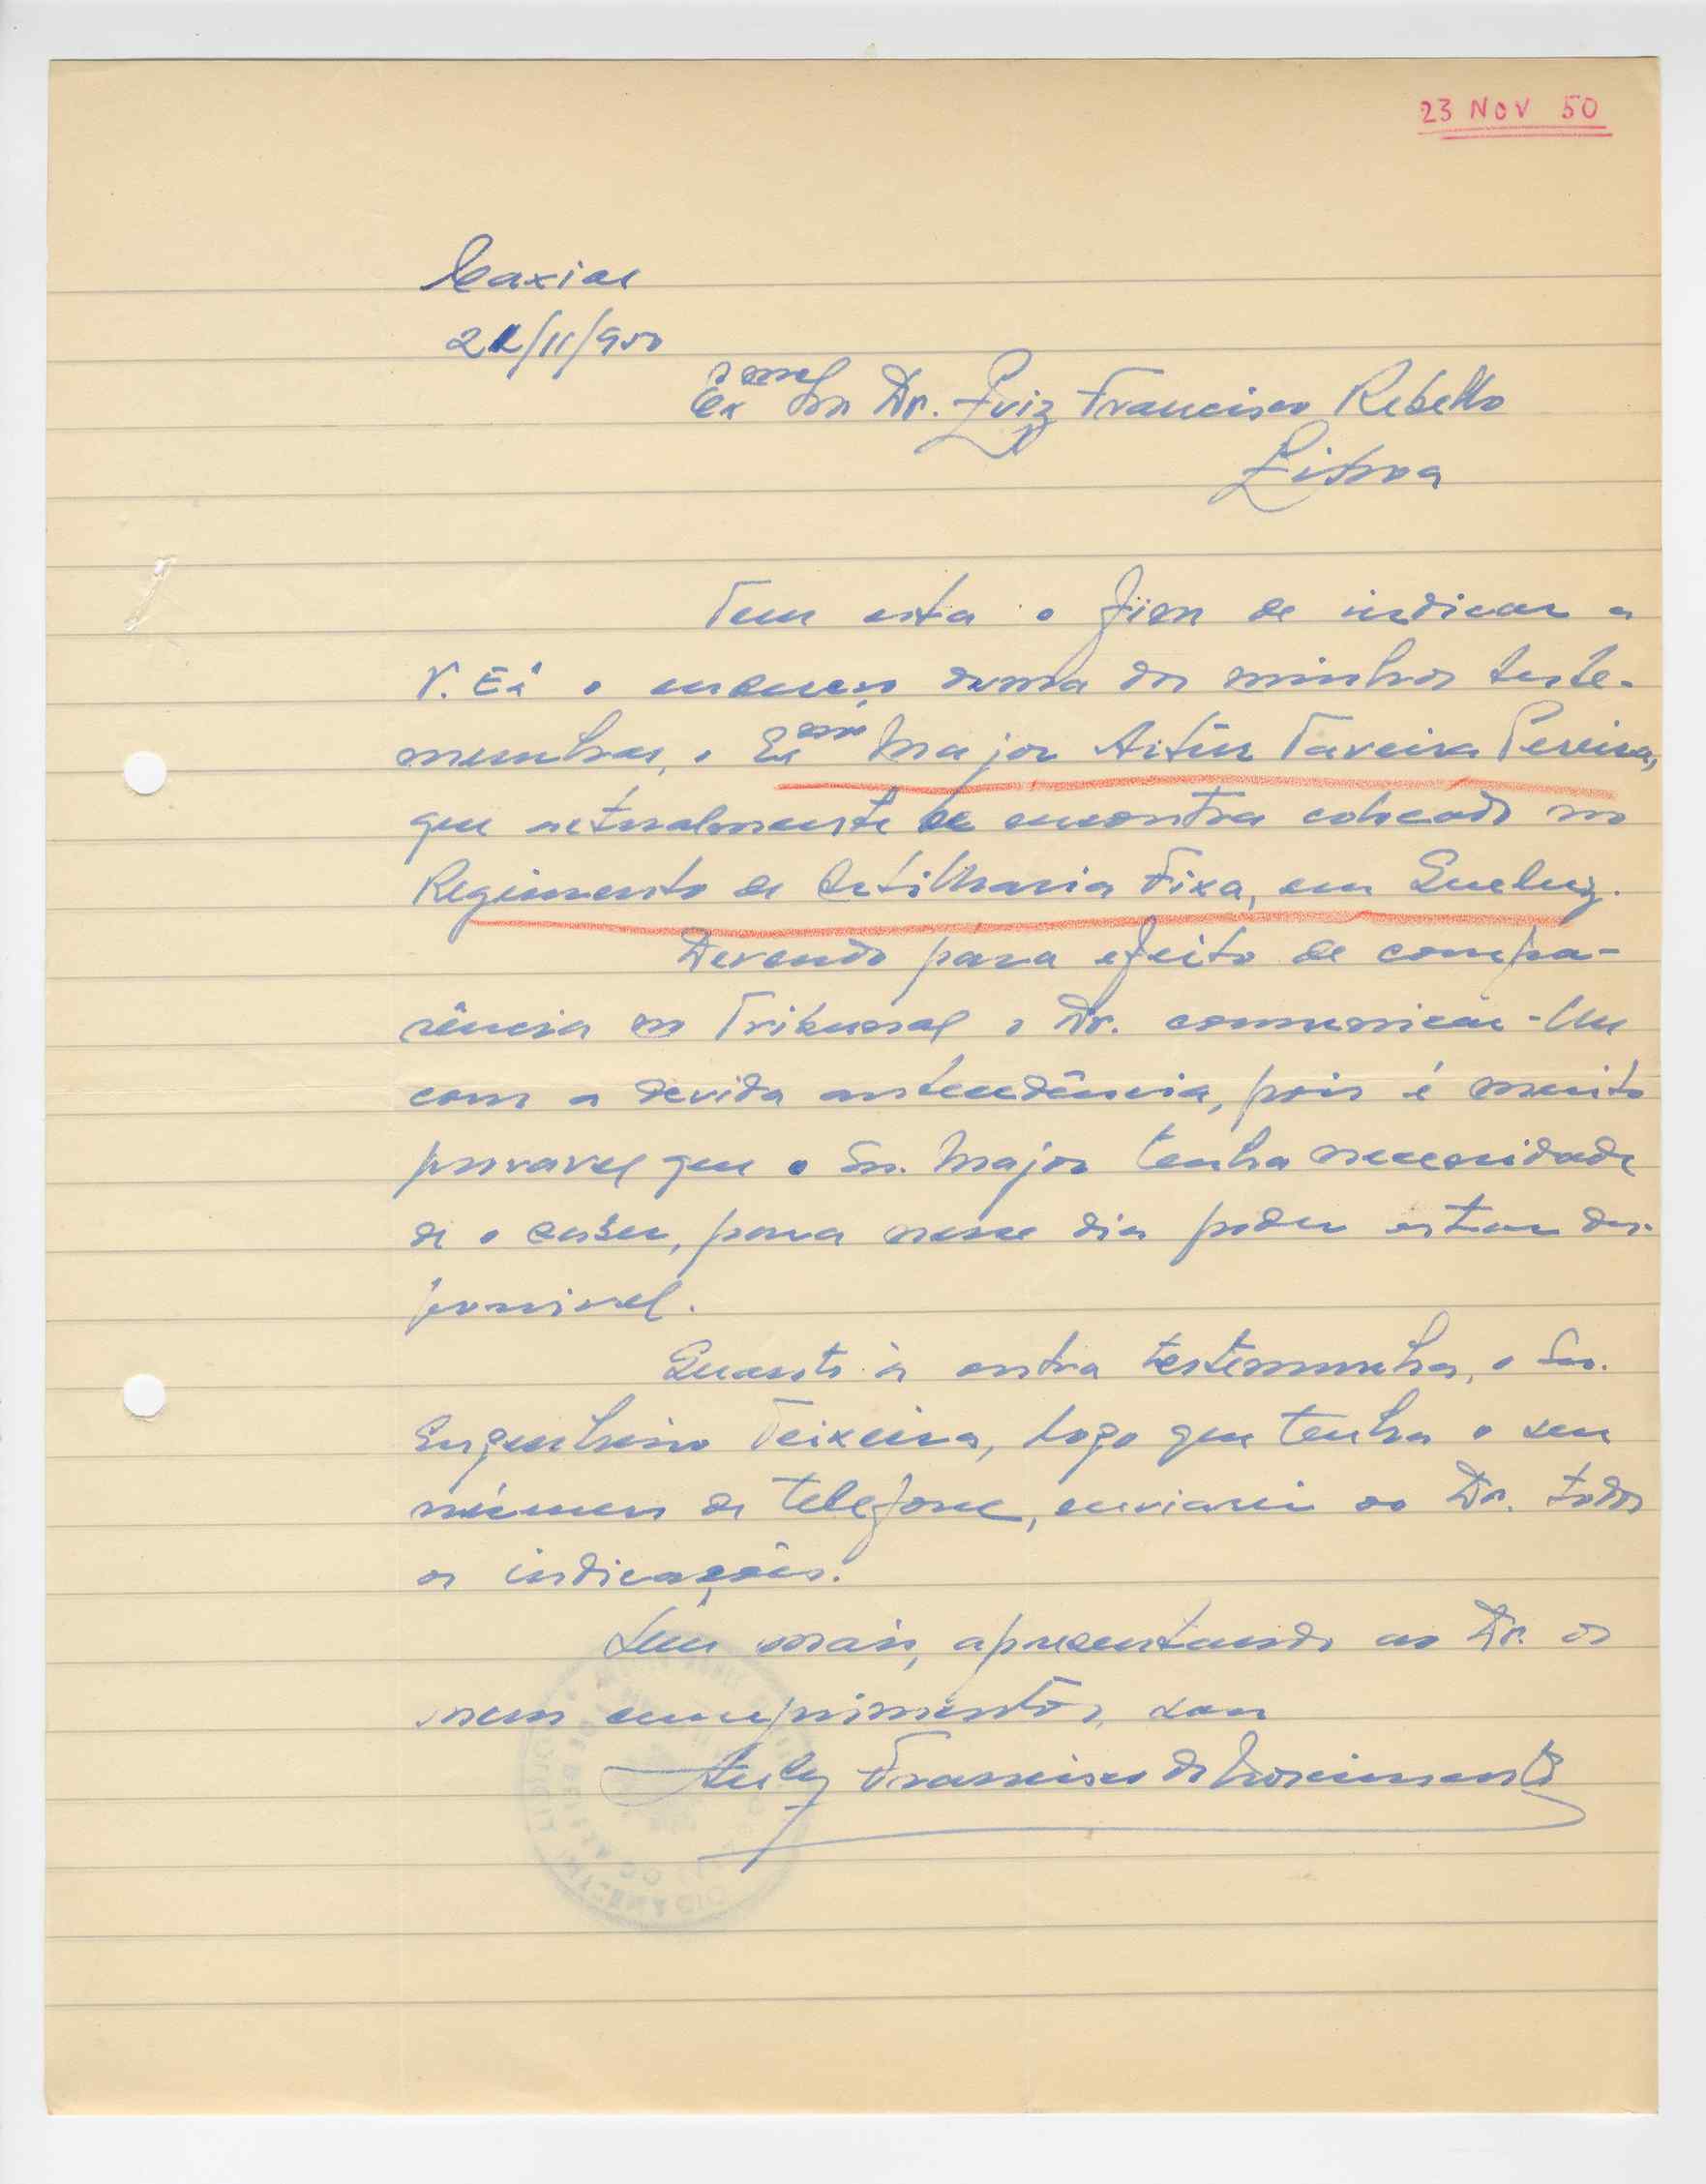 23 NOV 50
Caxias
21/11/950
Exmo Snr Dr. Luiz Francisco Rebello
Lisboa
Tem esta o fim de indicar a
V. Exª o endereço duma das minhas teste-
munhas, o Exmo Major Artur Taveira Pereira,
que actualmente se encontra colocado no
Regimento de Artilharia Fixa, em Queluz.
Devendo para efeito de compa-
rência no Tribunal o Dr. comunicar-lhe
com a devida antecedência, pois é muito
provavel que o Sr. Major tenha necessidade
de o saber, para nesse dia poder estar dis-
ponivel.
Quanto à outra testemunha, o Snr.
Engenheiro Teixeira, logo que tenha o seu
número de telefone, enviarei ao Dr. todas
as indicações.
Sem mais, apresentando ao Dr. os
meus cumprimentos, sou
Francisco do Nascimento